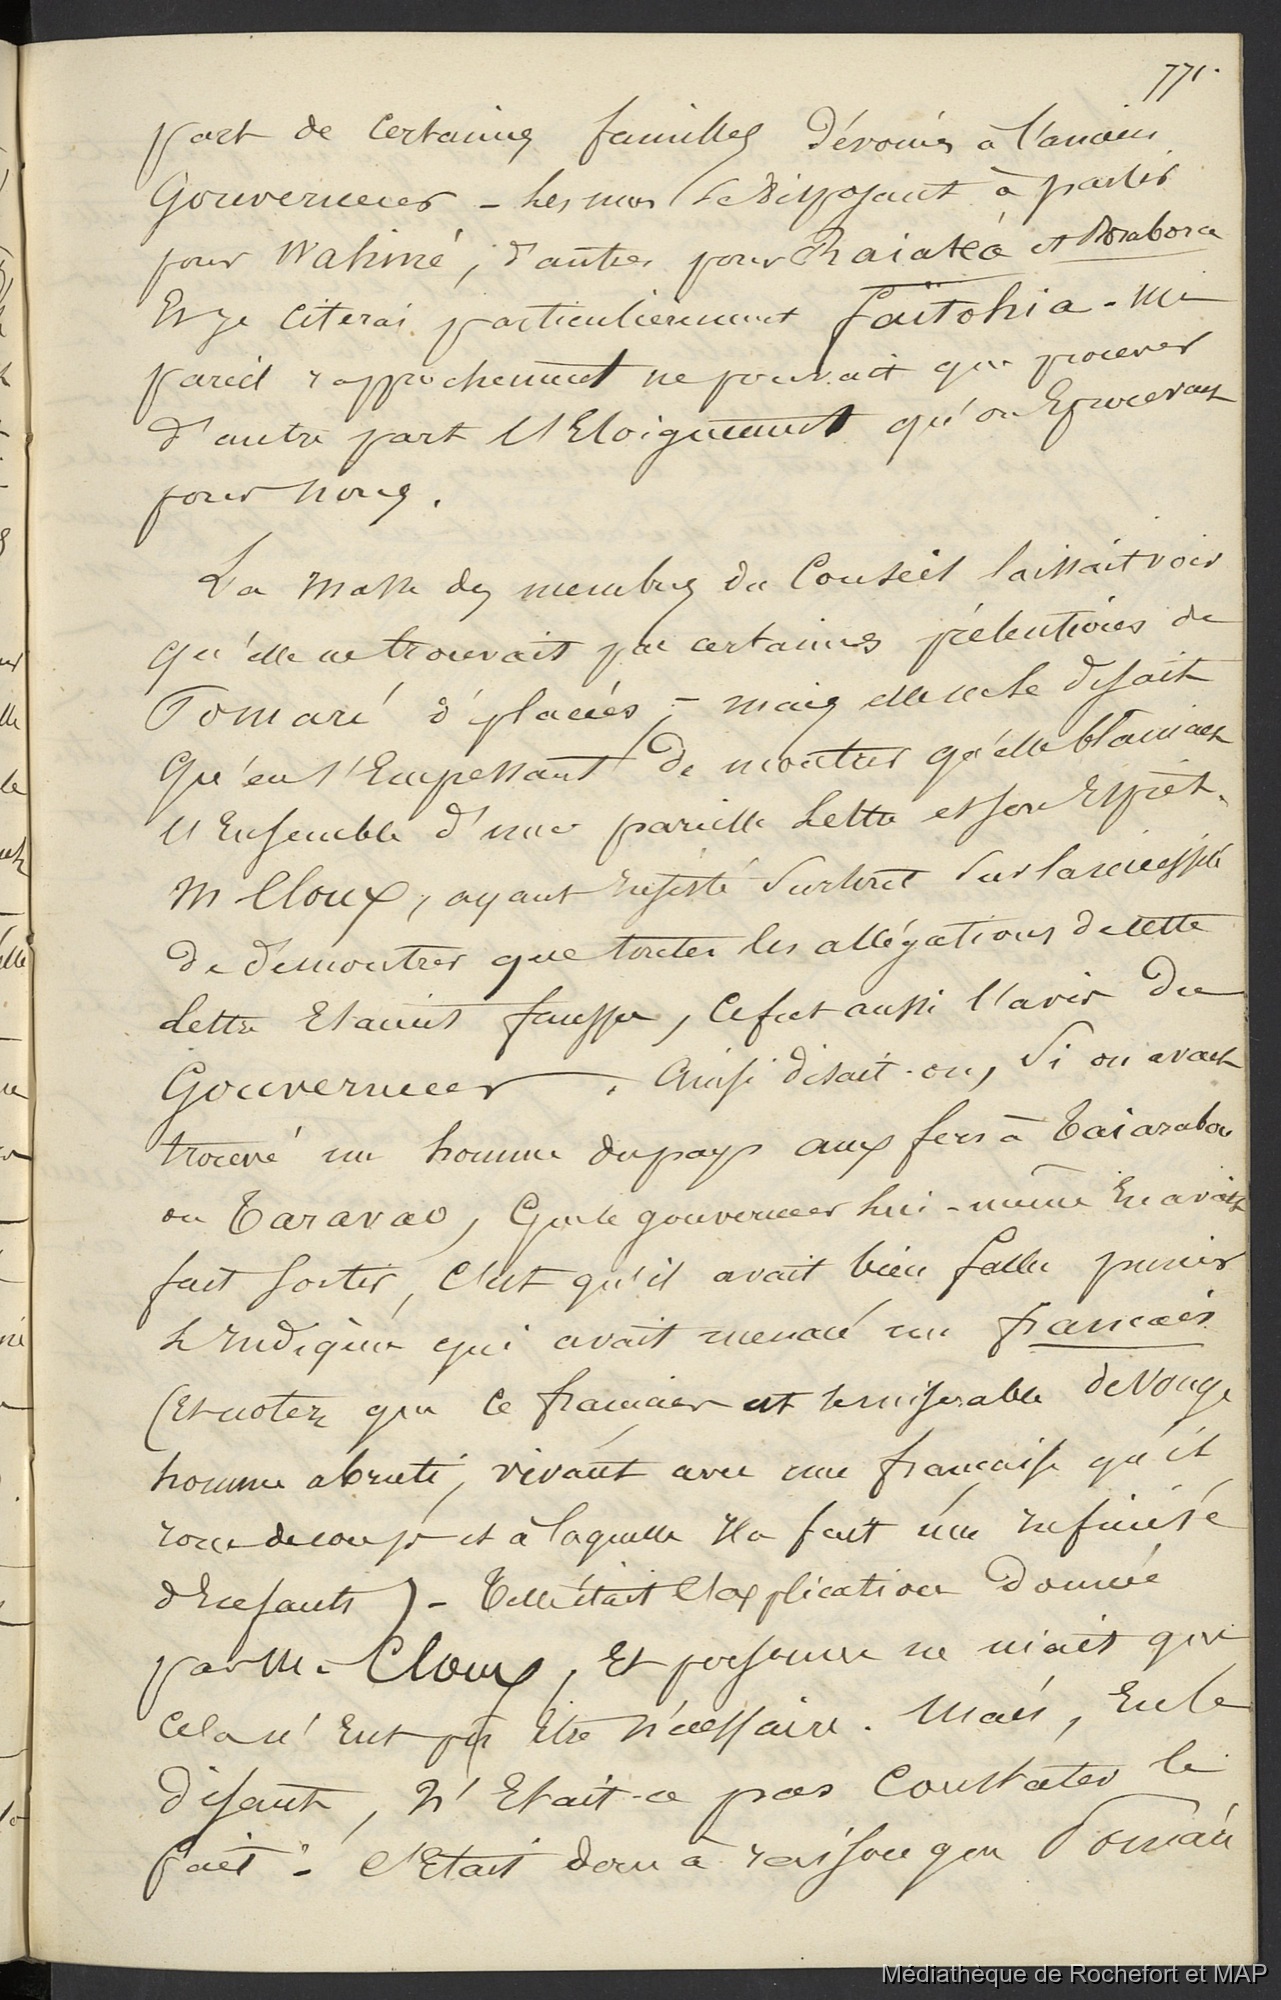 771.
part de certaines familles dévouées à l'ancien
Gouverneur - les uns se disposant à partir
pour Wahiné, d'autres pour Raiatéa et Borabora
Et je citerai particulièrement Faïtohia - un
pareil rapprochement ne pouvait que prouver
d'autre part l'Eloignement qu'on Eprouvait
pour nous.
La masse des membres du Conseil laissait voir
qu'elle ne trouvait pas certaines prétentions de
Pomaré déplacées ; - mais elle ne le disait
qu'en s'Empressant de montrer qu'elle blamait
l'Ensemble d'une pareille lettre et son Esprit.
M Cloux, ayant insisté surtout sur la nécessité
de demontrer que toutes les allégations de cette
lettre Etaient fausses, ce fut aussi l'avis du
Gouverneur. Ainsi disait-on, Si on avait
trouvé un homme du pays aux fers à Taiarabou
ou Taravao, que le gouverneur lui-même En avait
fait sortir, c'est qu'il avait bien fallu punir
L'Indigène qui avait menacé un français
(Et notez que ce français est le misérable deVouge
homme abruti, vivant avec une française qu'il
roue de coups et à laquelle il a fait une infinité
d'Enfants) - Telle était l'explication donnée
par M. Cloux, Et personne ne niait que
cela n'Eut pu être nécessaire. Mais, En le
disant, N'Etait-ce pas Constater le
fait : C'Etait donc à raison que Pomaré
Médiathèque de Rochefort et MAP